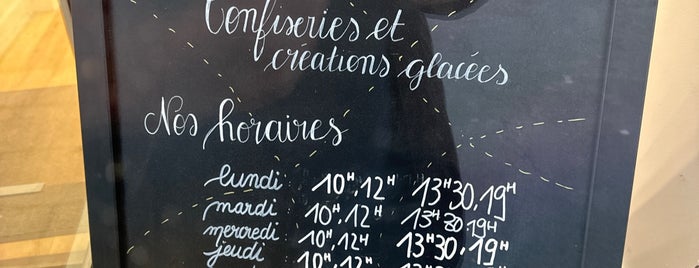 Confiseries et
créations glacées
Nos horaires
lundi 10H,12H 13H30,19H
mardi 10H,12H 13H30 19H
mercredi 10H,12H 13H30,19H
jeudi 10H,12H 13H30,19H